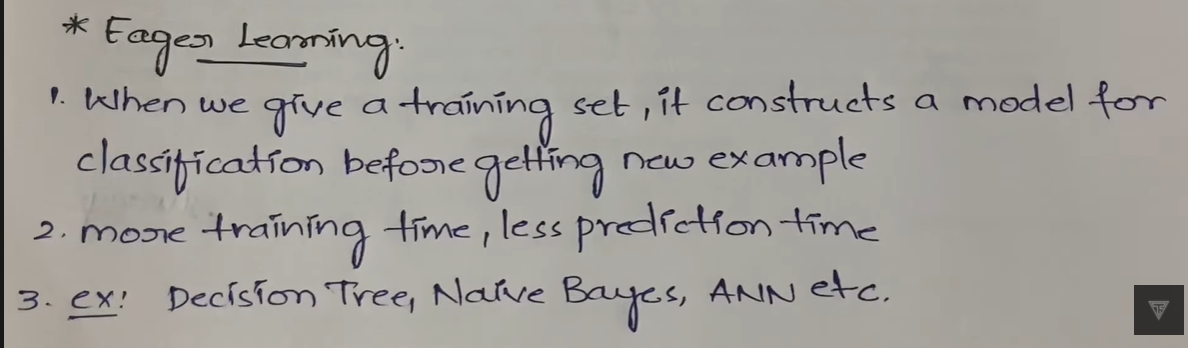 * Eager Learning:
1. When we give a training set, it constructs a model for
classification before getting new example
2. more training time, less prediction time
3. ex: Decision Tree, Naive Bayes, ANN etc.